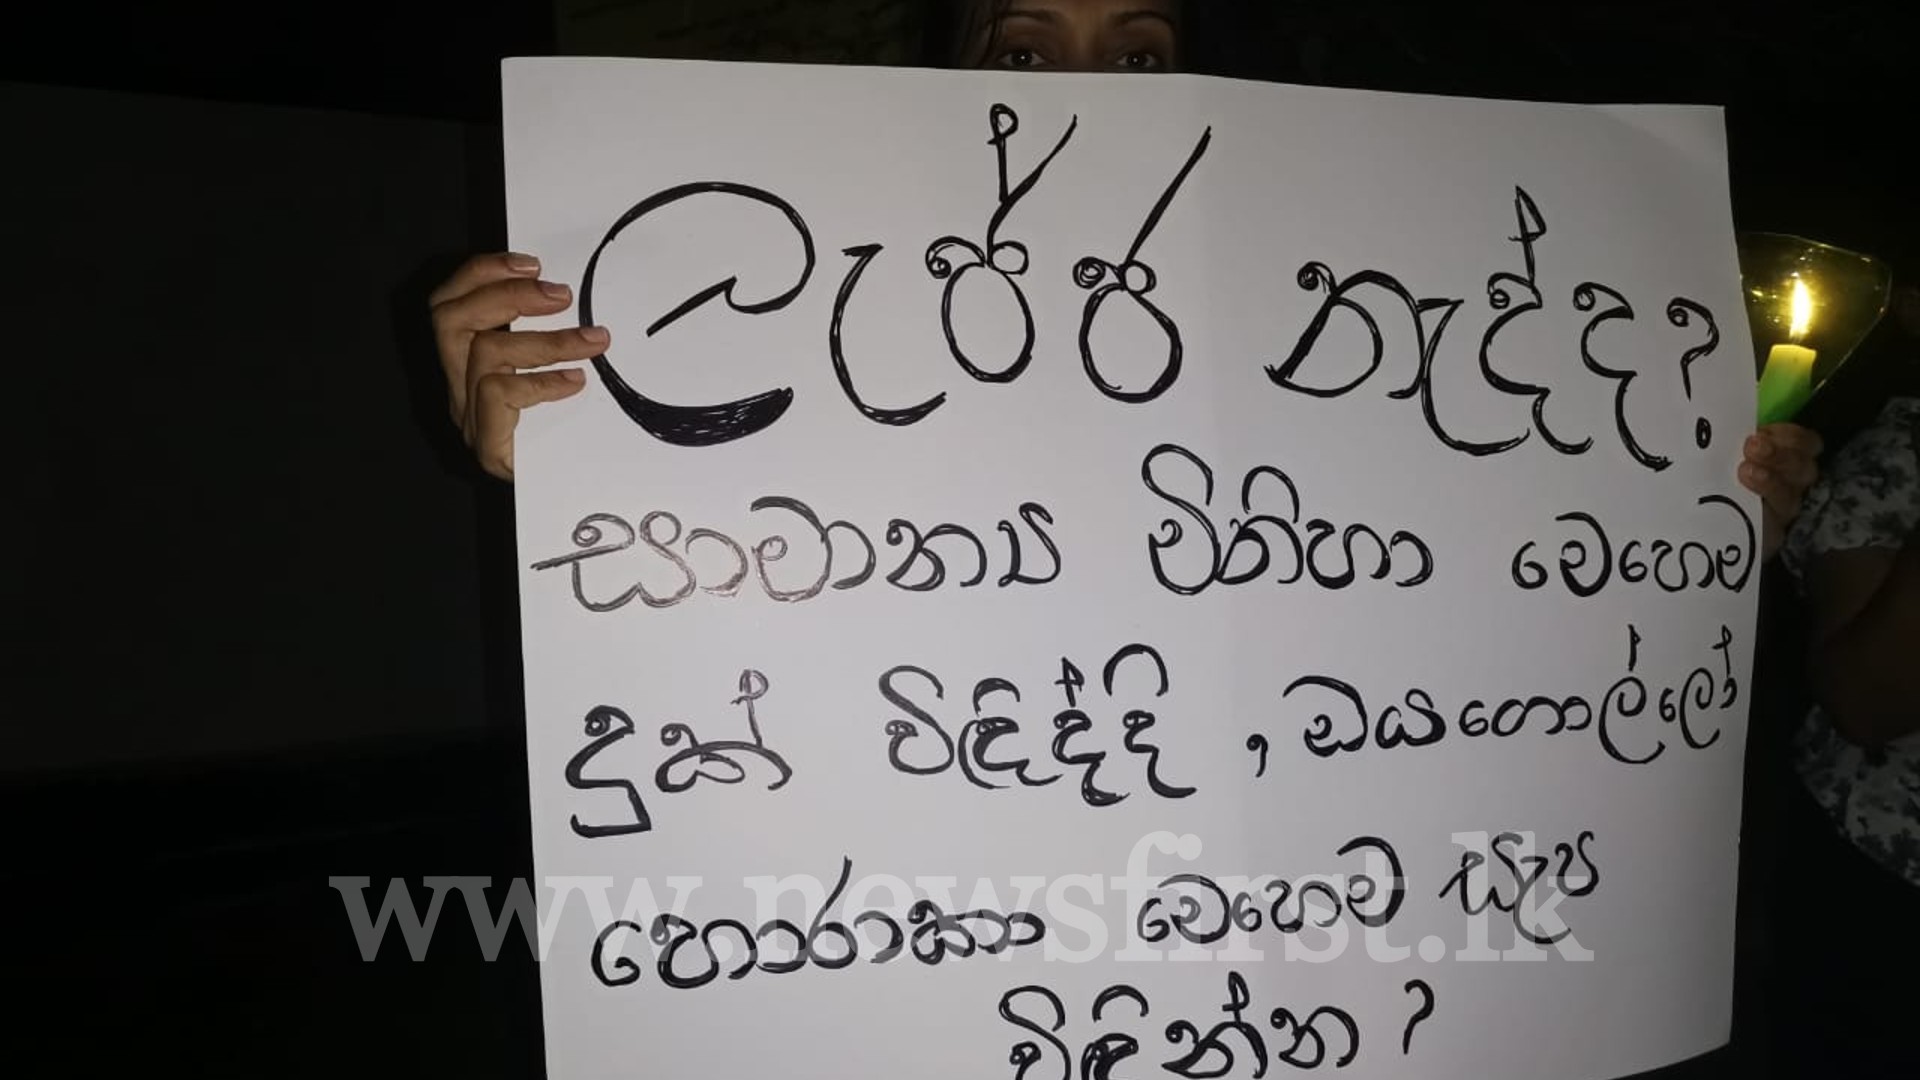 ලැජ්ජ නැද්ද?
සාමාන්‍ය මිනිහා මෙහෙම
දුක් විඳිද්දි , ඩයගොල්ලෝ
හොරාකා මෙහෙම සැප
විඳින්න ?
www.newsfirst.lk